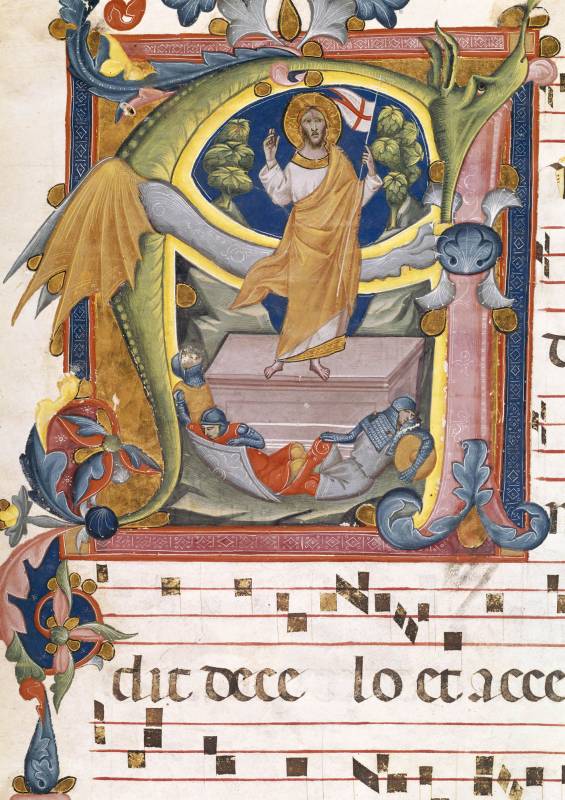 dit dece lo et acce